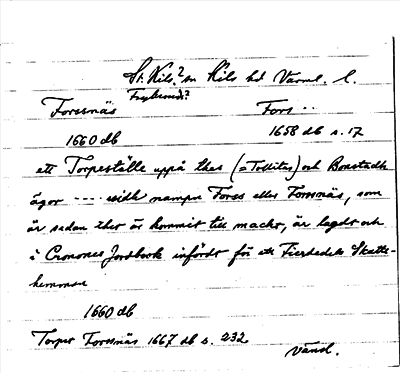 St. Kils? sn Kils hd Värml. l.
Fryksände?
Forssnäs Fors ..
1660 db 1658 db s. 17
ett Torpeställe uppå thas (=Tollitas) och Bonstadh
ägor ---- widh nampn Forss eller Forssnäs, som
är sedan ther är kommit till macht, är lagdt och
i Cronones Jordbook infördt för ett Fierdedels Skatte-
hemman
1660 db
Torpet Forssnäs 1667 db s. 232
Vänd.